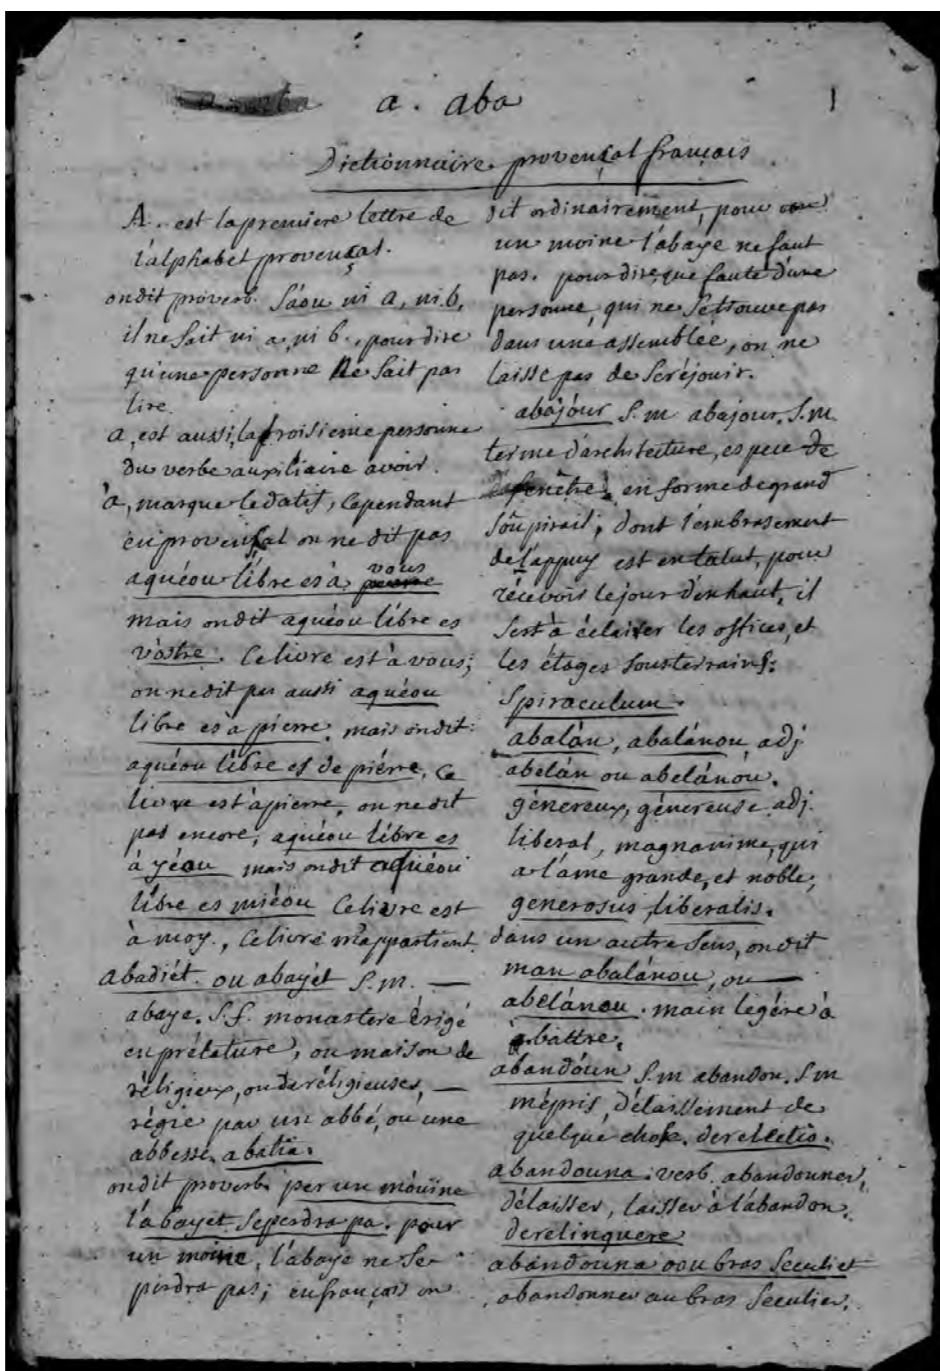 a. aba
1
Dictionnaire provençal français
A. est la premiere lettre de
l'alphabet provençal.
on dit proverb. sáou ni a, ni b,
il ne sait ni a, ni b, pour dire
qu'une personne ne sait pas
lire.
a, est aussi, la troisieme personne
du verbe auxiliaire avoir.
à, marque le datif, cependant
en provençal on ne dit pas
aquéou libre es à vous
mais on dit aquéou libre es
vòstre. Ce livre est à vous;
on ne dit pas aussi aquéou
libre es à pierre, mais on dit:
aquéou libre es de piérre, Ce
livre est à pierre, on ne dit
pas encore, aquéou libre es
à yéou mais on dit aquéou
libre es miéou Ce livre est
à moy, Ce livre m'appartient.
abadiét ou abayét s.m. —
abaye. s.f. monastere érigé
en prélature, ou maison de
réligieux, ou de réligieuses, —
régie par un abbé, ou une
abbesse. abatia.
on dit proverb. per un mòuine
l'abayet se perdra pa. pour
un moine, l'abaye ne se
perdra pas; en françois on
dit ordinairement, pour
un moine l'abaye ne faut
pas. pour dire, que faute d'une
personne, qui ne se trouve pas
dans une assemblée, on ne
laisse pas de se réjouir.
abajóur s.m abajour. s.m
terme d'architecture, espece de
fenêtre, en forme de grand
soûpirail, dont l'embrasement
de l'appuy est en talut, pour
récevoir le jour d'en haut, il
sert à éclairer les offices, et
les étages sousterrains:
spiraculum.
abalán, abalánou, adj
abelán ou abelánou.
génereux, génereuse adj.
liberal, magnanime, qui
a l'ame grande, et noble,
generosus, liberalis.
dans un autre sens, on dit
man abalánou, ou —
abelánou. main legére à
battre.
abandóun s.m abandon. s.m
mépris, délaissement de
quelque chose. derelictio.
abandouna. verb. abandonner,
délaisser, laisser à l'abandon.
derelinquere
abandouna oou bras seculiet
abandonner au bras seculier.